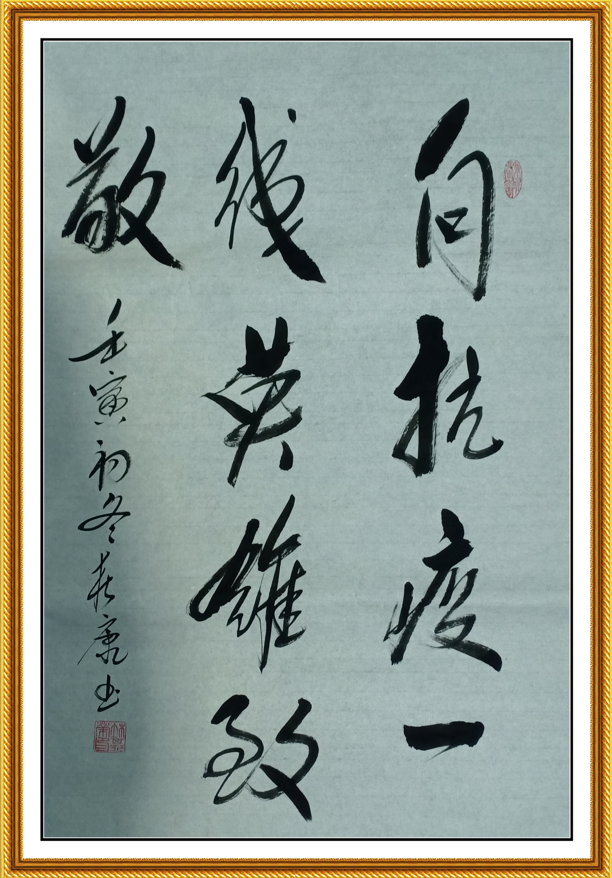 向抗疫一
线英雄致
敬
壬寅初冬春康书